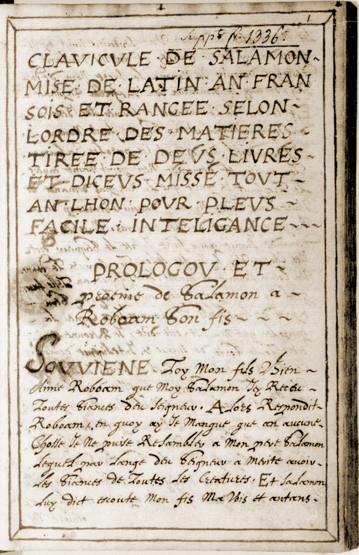 Supp.t fr. 1336.
1
CLAVICVLE DE SALAMON
MISE DE LATIN AN FRAN
SOIS ET RANGEE SELON
LORDRE DES MATIERES
TIREE DE DEVS LIVRES
ET DICEVS MISSE TOVT
AN LHON POVR PLEVS
FACILE INTELIGANCE
PROLOGOV ET
proeme de Salamon a
Roboam Son fis
SOVVIENE Toy Mon fils Bien
Aime Roboam que Moy Salamon Jey Receu
Toutes Siances deu Seigneur. Alors Respondit
Roboam, en quoy ay Je Manque que an auqune
Chosse Je Ne puise Resambler a Mon pere Salamon
lequel par lange deu Seigneur a Merite avoir
les Siances de Toutes les Creatures. Et Salamon
luy dict escoute Mon fis et antans